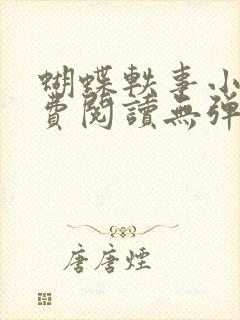 蝴蝶軼事小
費閱讀無彈
唐唐煙